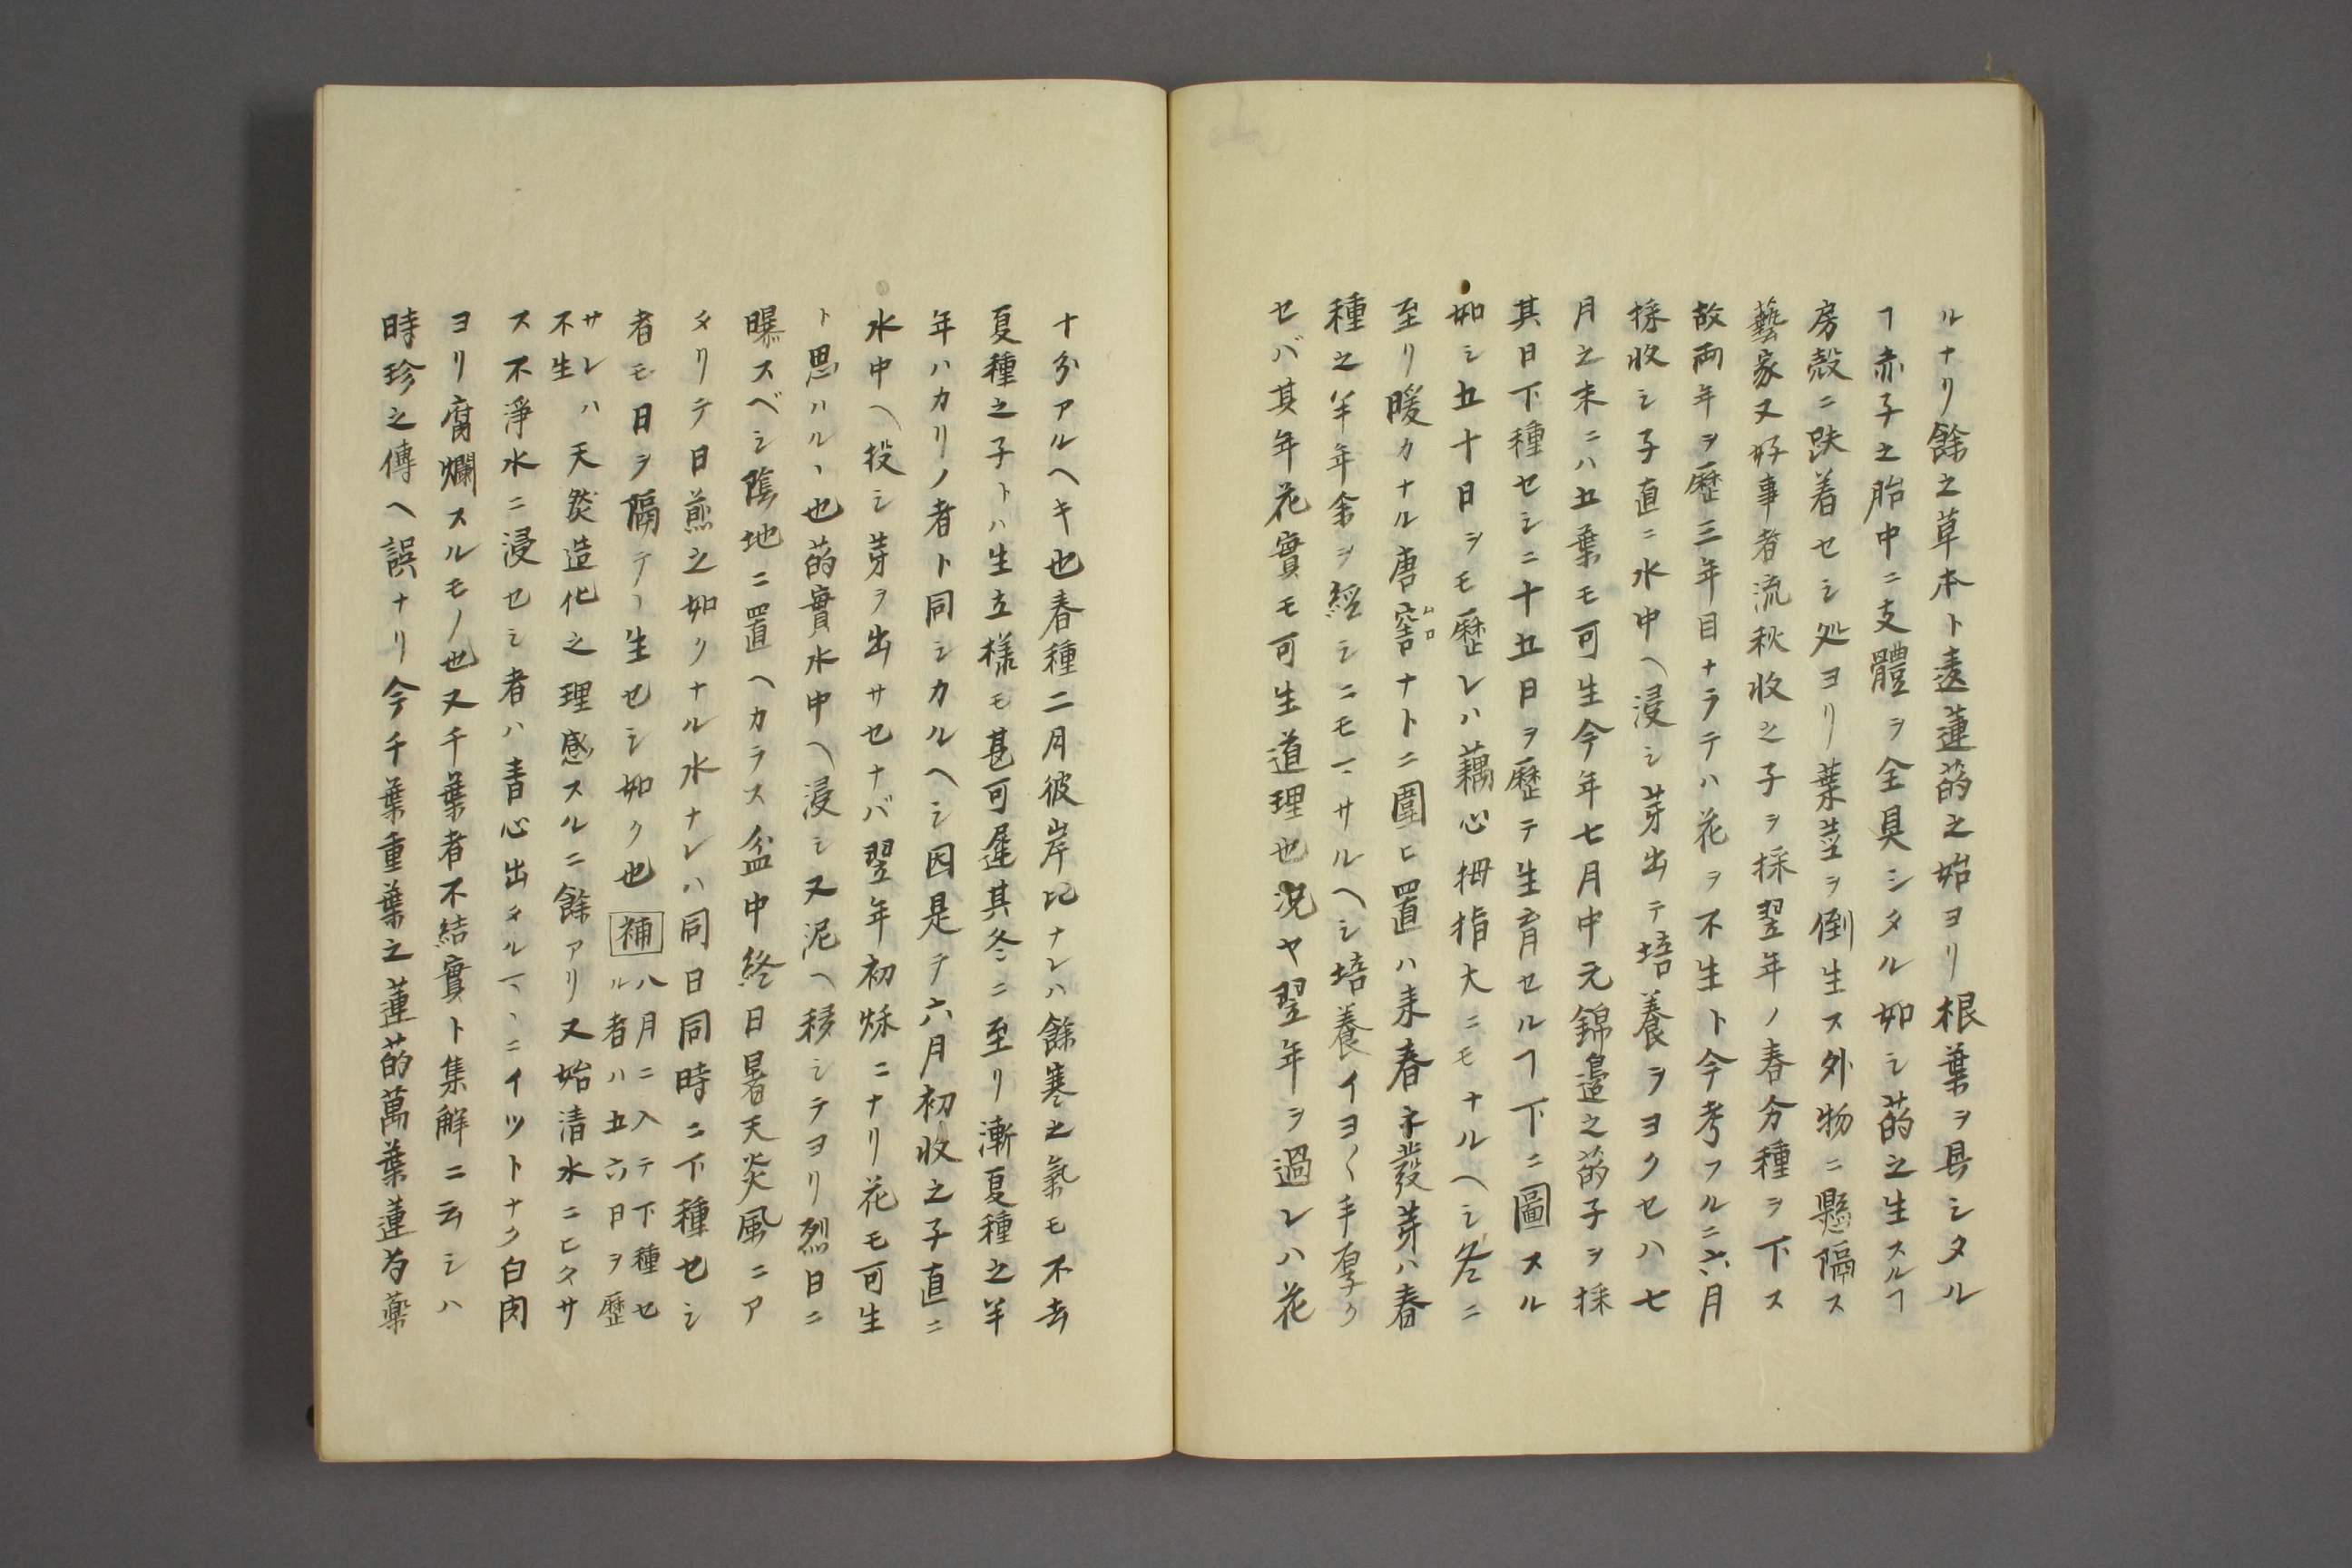 ルナリ餘之草木ト違蓮菂之始ヨリ根葉ヲ具シタル
ヿ赤子之胎中ニ支體ヲ全具シタル如シ菂之生スルヿ
房殻ニ跌着セシ処ヨリ葉茎ヲ倒生ス外物ニ懸隔ス
藝家又好事者流秋收之子ヲ採翌年ノ春分種ヲ下ス
故両年ヲ歴三年目ナラテハ花ヲ不生ト今考フルニ六月
採收シ子直ニ水中ヘ浸シ芽出テ培養ヲヨクセハ七
月之末ニハ五葉モ可生今年七月中元錦邉之菂子ヲ採
其日下種セシニ十五日ヲ歴テ生育セルヿ下ニ圖スル
如シ五十日ヲモ歴レハ藕心拇指大ニモナルヘシ冬ニ
至リ暖カナル唐窖ムロナトニ圍ヒ置ハ来春ネ發芽ハ春
種之半年余ヲ經シニモマサルヘシ培養イヨ〱手厚ク
セバ其年花實モ可生道理也況ヤ翌年ヲ過レハ花
十分アルヘキ也春種二月彼岸比ナレハ餘寒之氣モ不去
夏種之子トハ生立様モ甚可遅其冬ニ至リ漸夏種之半
年ハカリノ者ト同シカルヘシ因是テ六月初收之子直ニ
水中ヘ投シ芽ヲ出サセナバ翌年初秌ニナリ花モ可生
ト思ハルヽ也菂實水中ヘ浸シ又泥ヘ移シテヨリ烈日ニ
曝スベシ陰地ニ置ヘカラス盆中終日暑天炎風ニア
タリテ日煎之如クナル水ナレハ同日同時ニ下種セシ
者モ日ヲ隔テヽ生セシ如ク也 補 八月ニ入テ下種セ
ル者ハ五六日ヲ歴
サレハ不生 天然造化之理感スルニ餘アリ又始清水ニヒタサ
ス不淨水ニ浸セシ者ハ青心出タルマヽニイツトナク白肉
ヨリ腐爛スルモノ也又千葉者不結實ト集解ニ云シハ
時珍之傳ヘ誤ナリ今千葉重葉之蓮菂萬葉蓮為藥